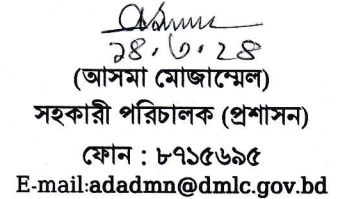 ২৪.৬.২৪
(আসমা মোজাম্মেল)
সহকারী পরিচালক (প্রশাসন)
ফোন : ৮৭১৫৬৯৫
E-mail:adadmn@dmlc.gov.bd